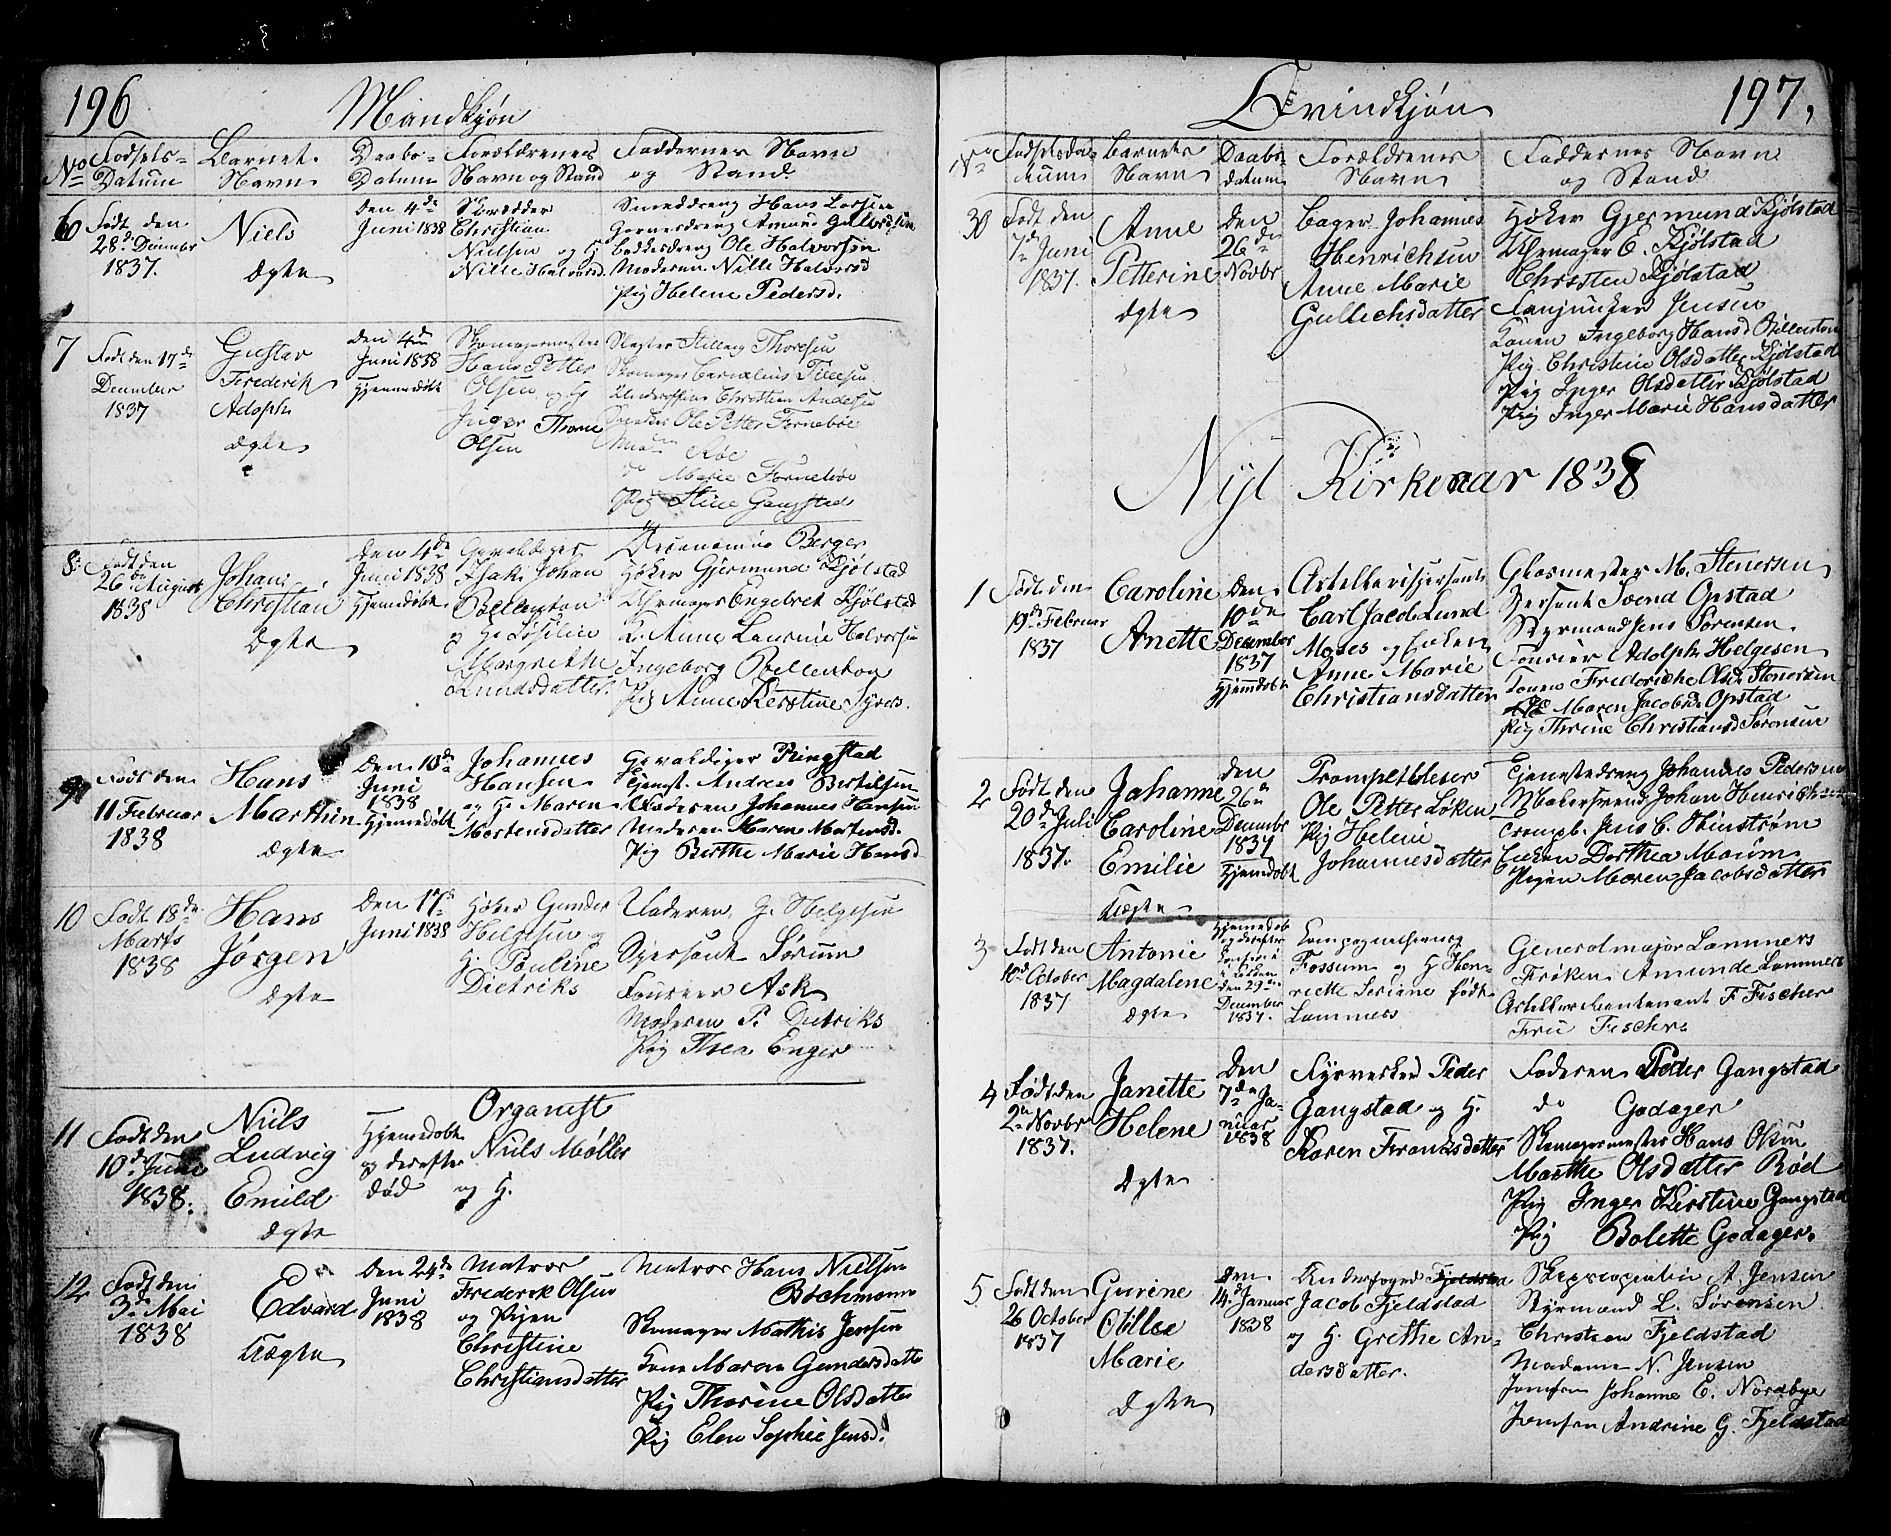 196
Mandkjøn
No
Fødsels-
Datum
Barnets
Navn
Daabs-
Datum
Forældrenes
Navn og Stand
Faddernes Navn
og Stand
6
Født den
28de Decembr
1837.
Niels
Ægte
Den 4de
Juni 1838
Skrædder
Christian
Nielsen og H
Nille Halvorsd.
Smeddreng Hans Larsen
Garverdreng Amund Gulbrandsen
Ole Halvorsen
Moderen Nille Halvorsd
Pig Helene Pedersd.
7
Født den 17de
December
1837
Gustav
Frederik
Adolph
Ægte
den 4de
Juni 1838
Hjemmedøbt
Skomagermester
Hans Petter
Olsen og H
Inger Thorine
Olsen
Slagter Thoresen
Skomager Tillesen
Christian Andersen
Ole Petter Fornebøe
Røe
do Marie Fornebøe
Pig Stine Gangstad
8:
Født den
26de August
1838
Johan
Christian
Ægte
Den 4de
Juni 1838
Hjemedøbt
Gevaldiger
Isak Johan
Bellenton
og H. Cesilie
Margrethe
Knudsdatter
Oeconomus Berger
Høker Gjermund Kjølstad
Uhrmager Engebret Kjølstad
K. Anne Laurine Halvorsen
Ingeborg Bellenton
Pig Anne Kerstine Syvers.
9
Født den
11 Februar
1838
Hans
Marthin
Ægte
Den 10de
Juni
1838
Hjemedøbt
Johannes
Hansen
og H. Maren
Mortensdatter
Gevaldiger Ringstad
Tjenest. Andreas Bertelsen
Faderen Johannes Hansen
Moderen Maren Mortensd.
Pig Berthe Marie Hansd
10
Født 18de
Marts
1838
Hans
Jørgen
Ægte
Den 17de
Juni 1838
Høker Gunder
Helgesen og
H. Pauline
Dietriks
Faderen G. Helgesen
Sjersant Sørum
Fourer Ask
Moderen P. Dietriks
Pig Thea Enger
11
Født den
10de Juni
1838.
Niels
Ludvig
Emild
Ægte
Hjemedøbt
og derefter
død
Organist
Niels Møller
og H.
12
Født den
3de Mai
1838
Edvard
Uægte
Den 24de
Juni
1838
Matros
Frederik Olsen
og Pigen
Christine
Christiansdatter
Matros Hans Nielsen
Bochmann
Skomager Mathis Jensen
Kone Maren Gundersdatter
Pig Thorine Olsdatter
Pig Elen Sophie Jensd.
197,
Qvindkjøn
No
Fødselsda-
tum
Barnets
Navn
Daabs
datum
Forældrenes
Navn
Faddernes Navn
og Stand
30
Født den
7de Juni
1837.
Anne
Petterine
Ægte
Den
26de
Novbr
Bager Johannes
Henrichsen
Anne Marie
Gullichsdatter
Høker Gjermund Kjølstad
Uhrmager E. Kjølstad
Christen Kjølstad
Fanjunker Jensen
Konen Ingeborg Hansd Billenton
Pig Christine Olsdatter Kjølstad
Pig Inger Olsdatter Kjølstad
Pig Inger Marie Hansdatter
Nyt Kirkeaar 1838
1
Født den
19de Februar
1837
Caroline
Anette
Den
10de
December
1837
Hjemdøbt
Artellerisjersant
Carl Jacob Lund
Moses og Enken
Anne Marie
Christiansdatter
Glasmester M. Stenersen
Sjersent Svend Opstad
Styrmand Jens Sørensen
Fourier Adolph Helgesen
Konen Frederikke Olsd. Stenersen
Maren Jacobsd. Opstad
Pig Thrine Christiansd Sørensen
2
Født den
20de Juli
1837.
Johanne
Caroline
Emilie
Uægte
den
26de
Decembr
1837
Hjemedøbt
Trompetblæser
Ole Petter Løken
Pig Helene
Johannesdatter
Tjenestedreng Johannes Pedersen
Malersvend Johan Henrichsen
Trompb. Jens C. Stenstrøm
Enken Dorthea Maum
Pigen Maren Jacobsdatter
3
Født den
10de October
1837
Antonie
Magdalene
Ægte
Hjemmedøb
og derefter
i Kirken
den 29de
December
1837.
Compagnichirurg
Fossum og H Hen-
riette Seriane født
Lammers
Generalmajor Lammers
Frøken Amunde Lammers
Artellerieleutenant F Fischer
Frue Fischer
4
Født den
2de Novbr
1837.
Janette
Helene
Ægte
Den
7de Ja-
nuar
1838
Fyrverker Peder
Gangstad og H.
Karen Frantsdatter
Faderen Peder Gangstad
do Godager
Skomagermester Hans Olsen
Marthe Olsdatter Rød
Pig Inger Kirstine Gangstad
Pig Bolette Godager
5
Født den
26 October
1837
Gurine
Otillie
Marie
Ægte
Den
14de Januar
1838
Underfoged
Jacob Fjeldstad
og H. Grethe An-
dersdatter.
A. Jensen
Styrmand L. Sørensen
Christian Fjeldstad
Madame N. Jensen
Jomfru Johanne E. Nordbye
Jomfru Andrine G. Fjeldstad